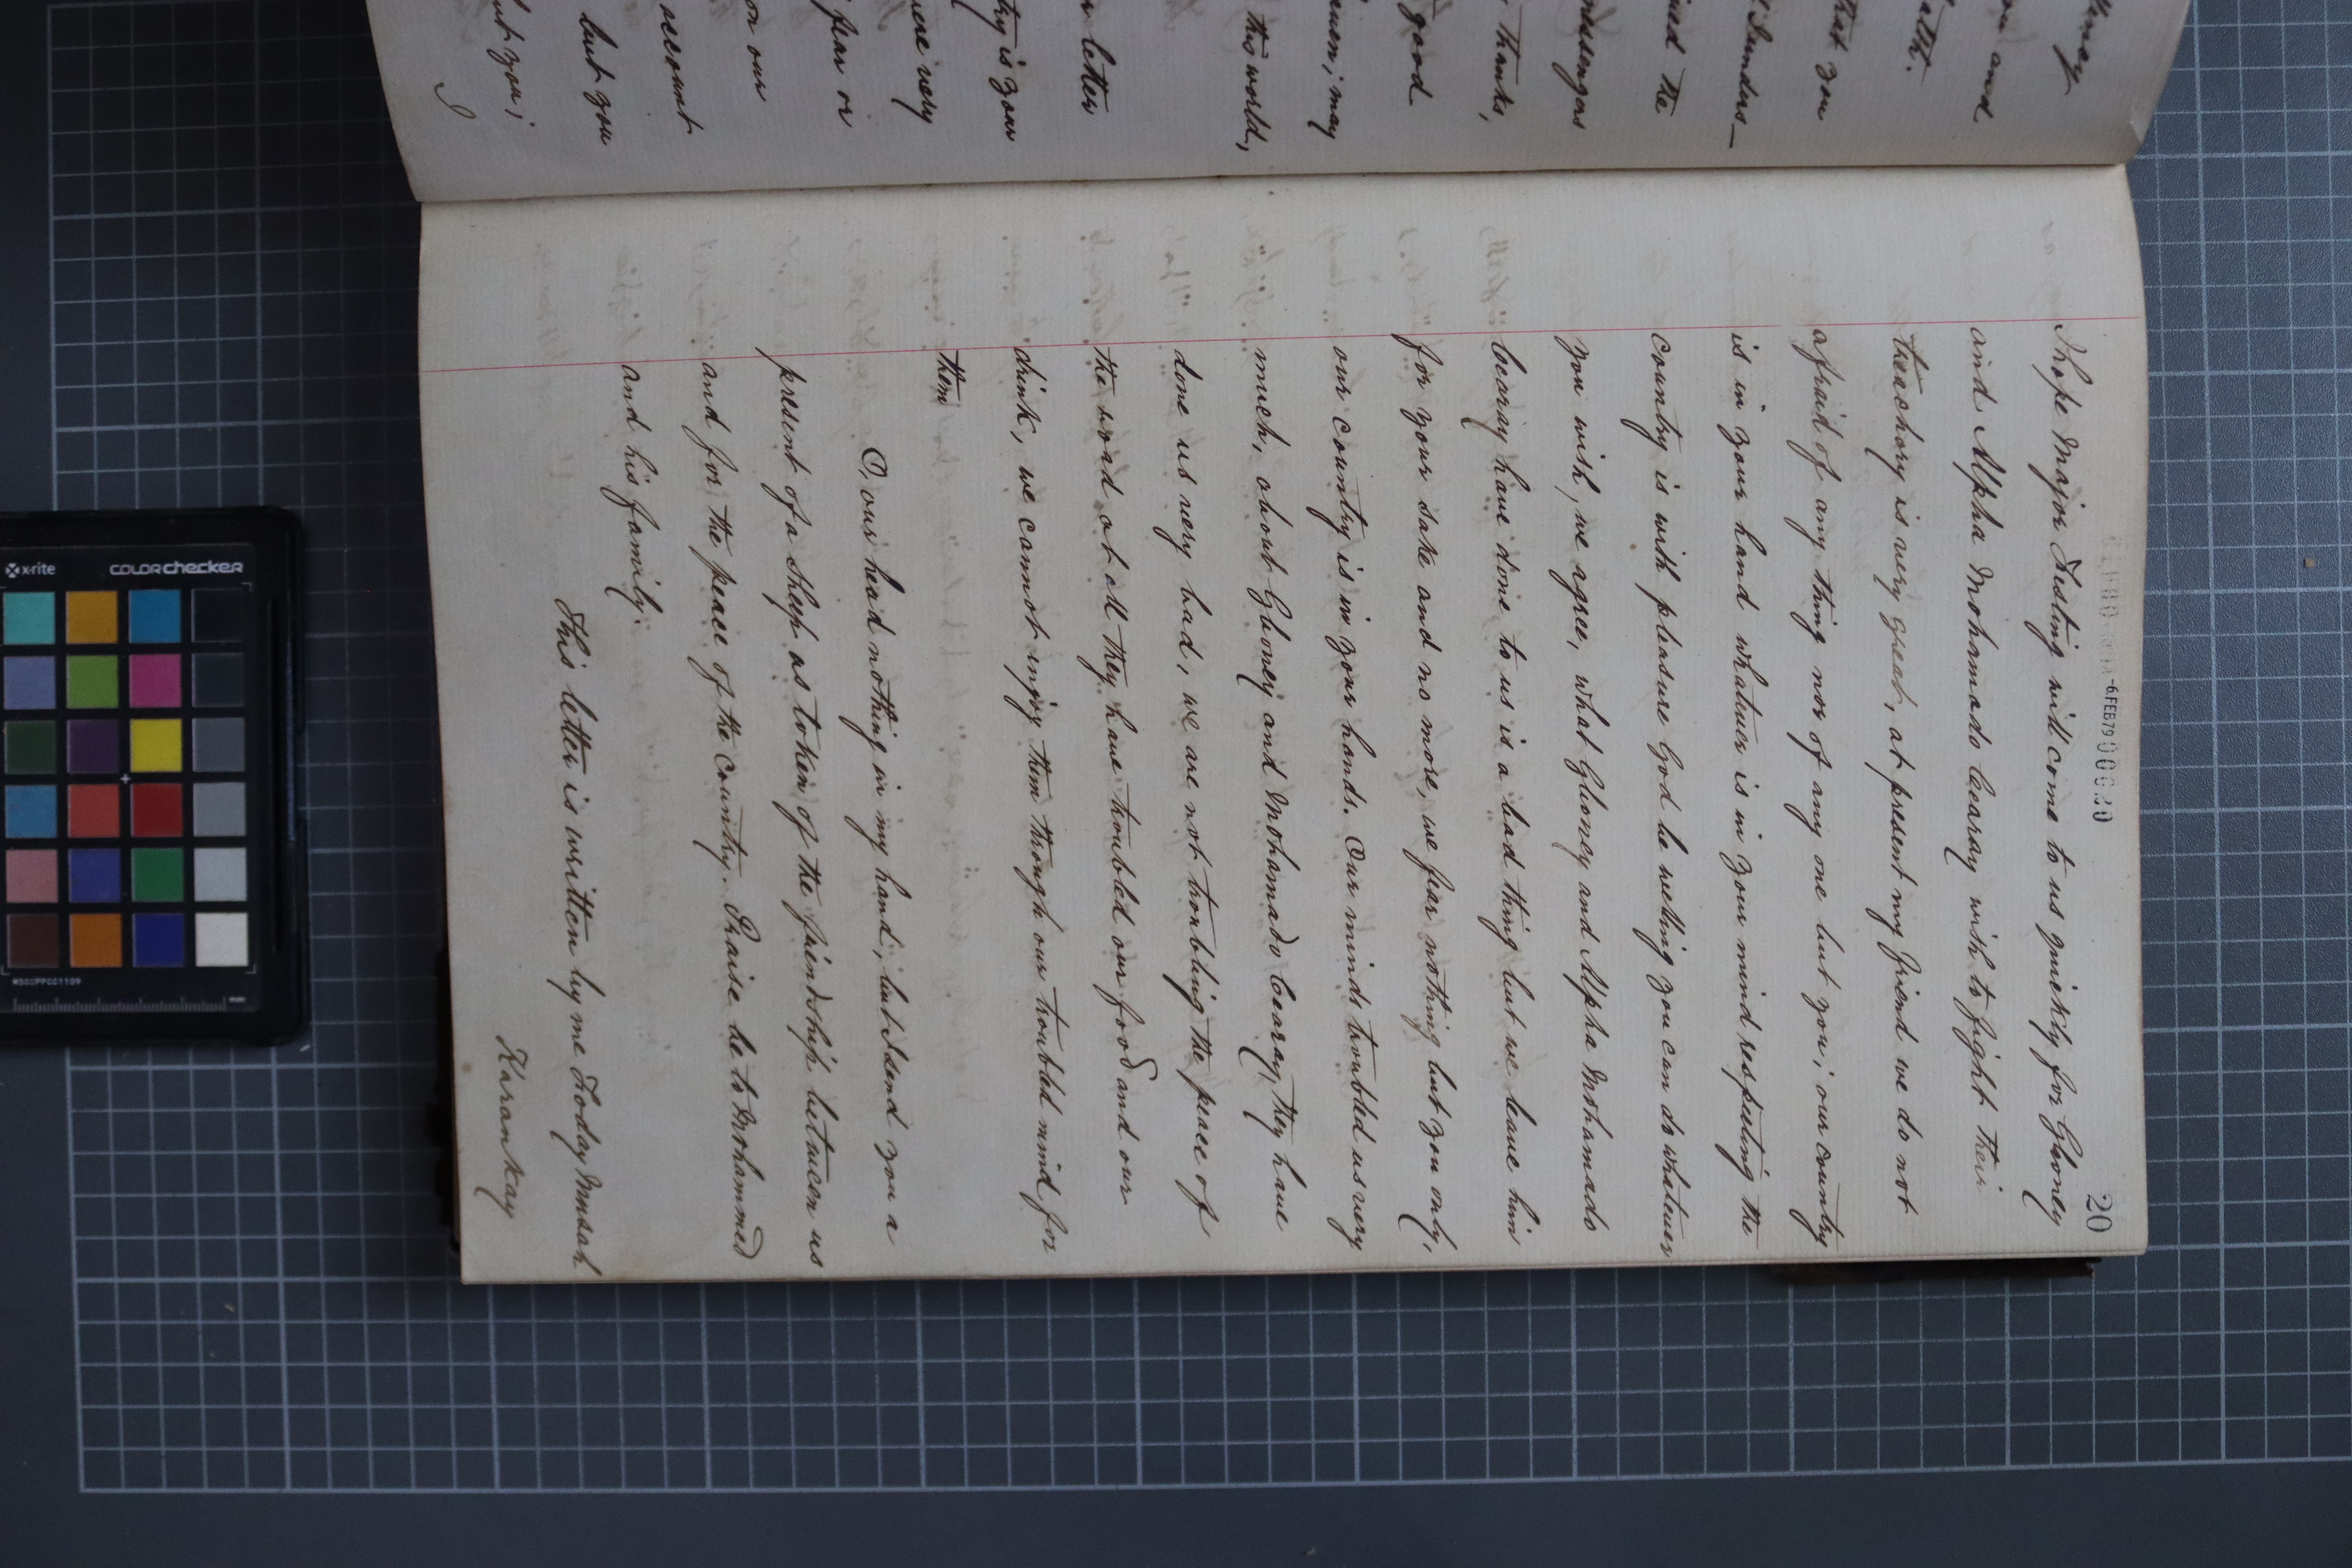 thnay
you and
alth.
that you
Sunders_
ived the
messengers
thanks,
good
amen; may
this world,
letter
try is your
were very
fear or
or our
account
but you
but you;
I
20
-6FEB79 000030
I hope Major Festing will come to us quickly for Gboney
and Alpha Mohamado bearay wish to fight their
treachory is very great, at present my friend we do not
afraid of any thing nor of any one but you; our country
is in your hand whatever is in your mind respecting the
country is with pleasure God be willing you can do whatever
you wish, we agree, what Gboney and Alpha Mohamado
bearay have done to us is a bad thing but we leave him
for your sake and no more, we fear nothing but you only,
our country is in your hands. Our minds troubled us very
much, about Gboney and Mohamado bearay, they have
done us very bad, we are not troubling the peace of
the road at all they have troubled our food and our
drink, we cannot injoy them through our troubled mind for
them
O, our head nothing in my hand, but I send you a
present of a Sheep as token of the friendship between us
and for the peace of the country. Praise be to Mohammed
and his family.
This letter is written by me Foday Musah
Karankay
x-rite
COLORchecker
MSCCPPCC1109
mm